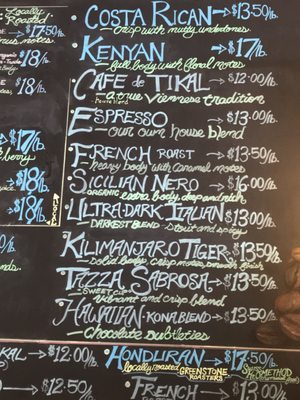 Locally
Roasted
$17.50/lb.
$18/lb.
$18/lb.
$17/lb.
berry
$18/lb.
$18/lb.
COSTA RICAN → $13.50/lb.
crisp with nutty undertones
KENYAN → $17/lb.
full body with floral notes
CAFE de TIKAL → $12.00/lb.
a true Viennese tradition
ESPRESSO → $13.00/lb.
our own house blend
FRENCH ROAST → $13.50/lb.
heavy body with caramel notes
SICILIAN NERO → $16.00/lb.
ORGANIC extra body, deep and rich
ULTRA-DARK ITALIAN $13.00/lb.
DARKEST BLEND - stout and spicy
KILIMANJARO TIGER → $13.50/lb.
solid body, crisp notes, smooth finish
TAZZA SABROSA → $13.50/lb.
"SWEET CUP" vibrant and crisp blend
HAWAIIAN - KONA BLEND → $13.50/lb.
Chocolate subtleties
KAL → $12.00/lb.
→ $12.50/lb.
HONDURAN → $17.50/lb.
locally roasted GREENSTONE ROASTERS
FRENCH → $13.00/lb.